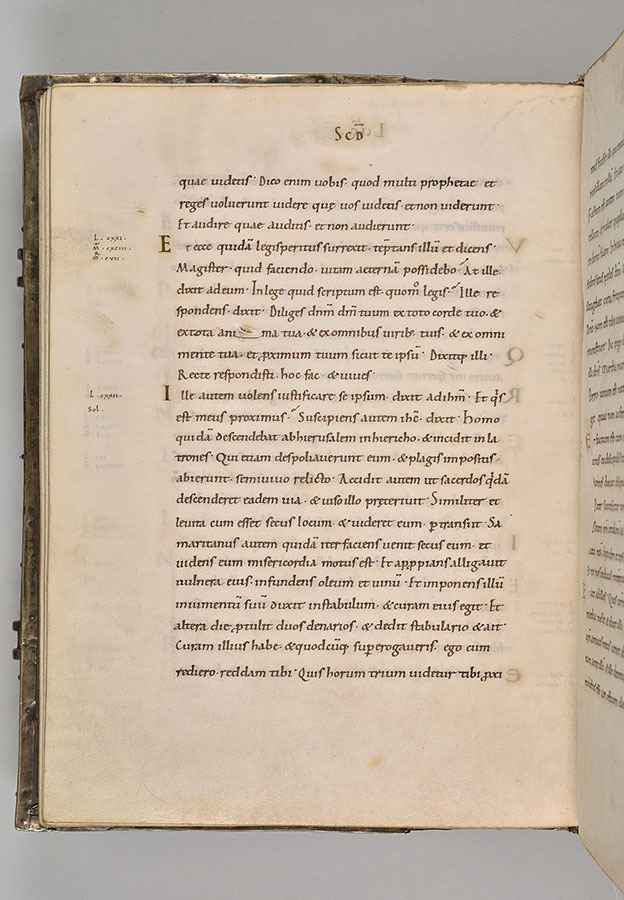 Scd̄
quae uidetis· Dico enim uobis· quod multi prophetae et
reges uoluerunt uidere quę uos uidetis· et non uiderunt·
Et audire quae auditis· et non audierunt·
L· cxxi·
M̄· cxciii·
M̄· cvii·
Et ecce quidā legisperitus surrexit· tēptans illū et dicens·
Magister· quid faciendo· uitam aeternā possidebo· At ille
dixit ad eum· In lege quid scriptum est· quom̊ legis· Ille re
spondens· dixit· Diliges dnm̄ dm̄ tuum ex toto corde tuo· &
ex tota ani ma tua· & ex omnibus uirib; tuis· & ex omni
mente tua· et ꝓximum tuum sicut te ipsū· Dixitq; illi·
Recte respondisti· hoc fac· & uiues·
L· cxxii·
Sol·
Ille autem uolens iustificare se ipsum· dixit ad ihm̄· Et q̓s
est meus proximus· Suscipiens autem ihc̄· dixit· Homo
quidā descendebat ab hierusalem in hiericho· & incidit in la
trones· Qui etiam despoliauerunt eum· & plagis impositis
abierunt· semiuiuo relicto· Accidit autem ut sacerdos q̓dā
descenderet eadem uia· & uiso illo preteriuit· Similiter et
leuita cum esset secus locum· & uideret eum· ꝑtransiit· Sa
maritanus autem quidā iter faciens uenit secus eum· et
uidens eum misericordia motus est· Et appꝓians alligauit
uulnera eius· infundens oleum et uinū· Et imponens illū
in iumentū suū duxit in stabulum· & curam eius egit· Et
altera die ꝓtulit duos denarios· & dedit stabulario & ait·
Curam illius habe· & quodcūq; supererogaueris· ego cum
rediero· reddam tibi· Quis horum trium uidetur tibi ꝓxi